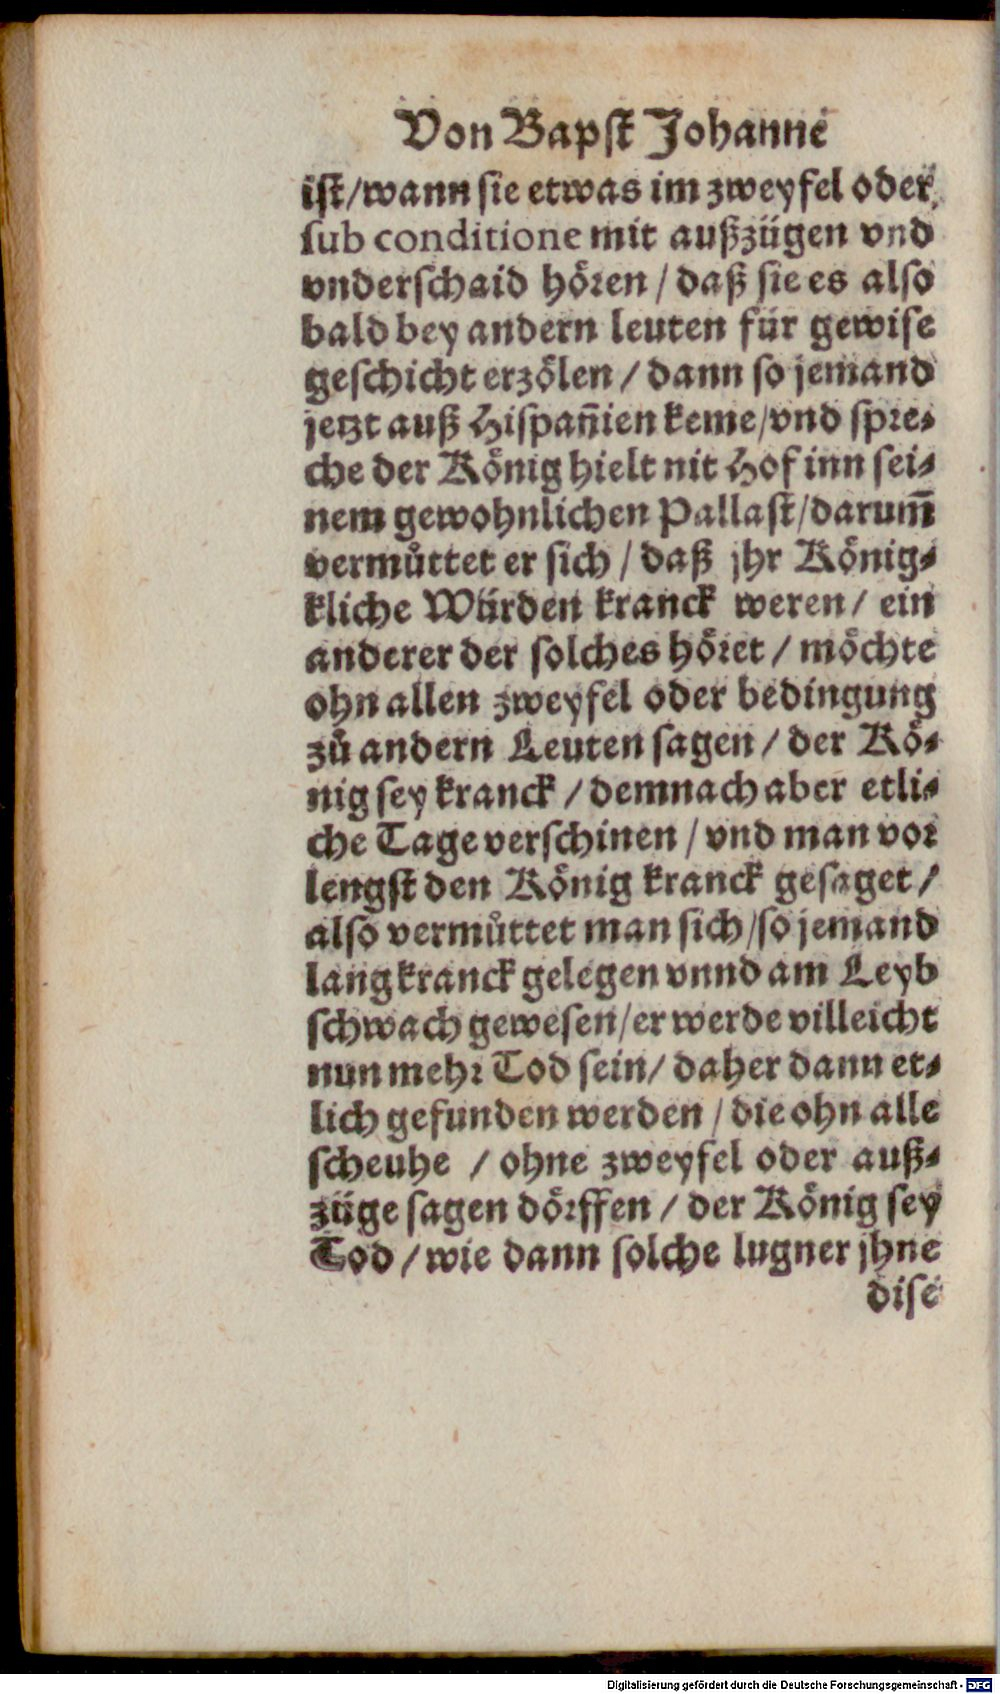 Von Bapst Johanne
ist/wann sie etwas im zweyfel oder
sub conditione mit außzügen vnd
vnderschaid hören / daß sie es also
bald bey andern leuten für gewise
geschicht erzölen / dann so jemand
jetzt auß Hispañien keme/vnd spre-
che der König hielt nit Hof inn sei-
nem gewohnlichen Pallast/darum̄
vermůttet er sich / daß jhr König-
kliche Würden kranck weren / ein
anderer der solches höret / möchte
ohn allen zweyfel oder bedingung
zů andern Leuten sagen / der Kö-
nig sey kranck / demnach aber etli-
che Tage verschinen / vnd man vor
lengst den König kranck gesaget /
also vermůttet man sich/so jemand
lang kranck gelegen vnnd am Leyb
schwach gewesen/er werde villeicht
nun mehr Tod sein/ daher dann et-
lich gefunden werden / die ohn alle
scheuhe / ohne zweyfel oder auß-
züge sagen dörffen / der König sey
Tod / wie dann solche lugner jhne
dise
Digitalisierung gefördert durch die Deutsche Forschungsgemeinschaft - DFG